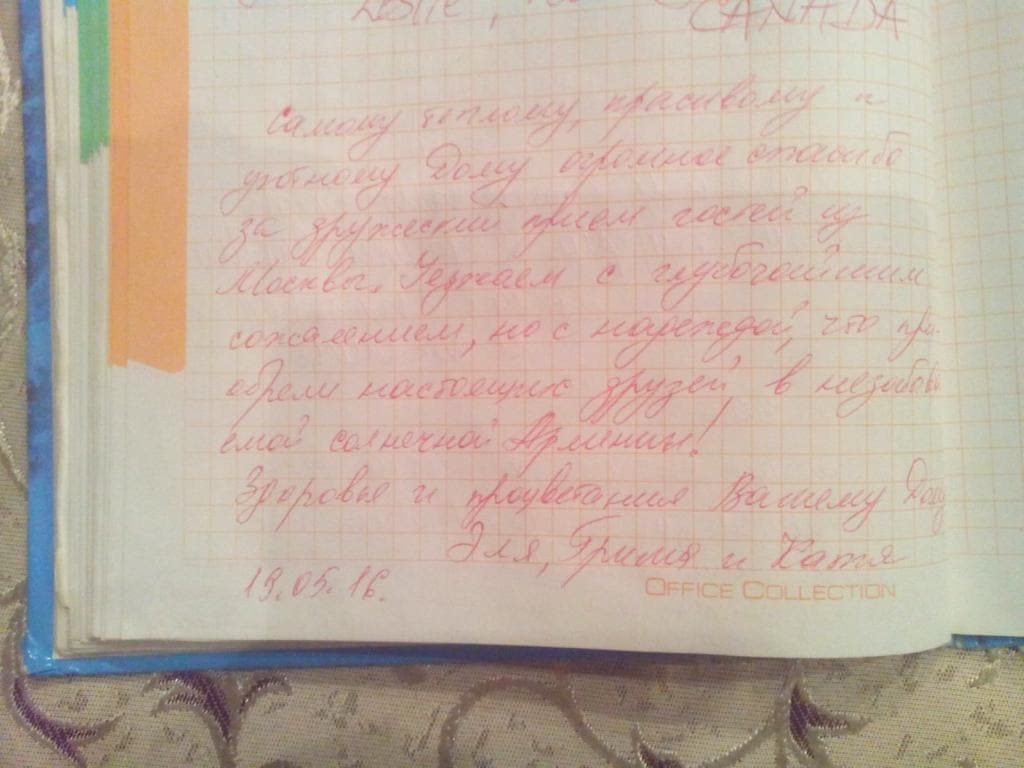 CANADA
Самому теплому, красивому и
уютному Дому огромное спасибо
за дружеский прием гостей из
Москвы. Уезжаем с глубочайшим
сожалением, но с надеждой, что при-
обрели настоящих друзей в незабыва
емой солнечной Армении!
Здоровья и процветания Вашему Дому
Эля, и Катя
19.05.16.
OFFICE COLLECTION